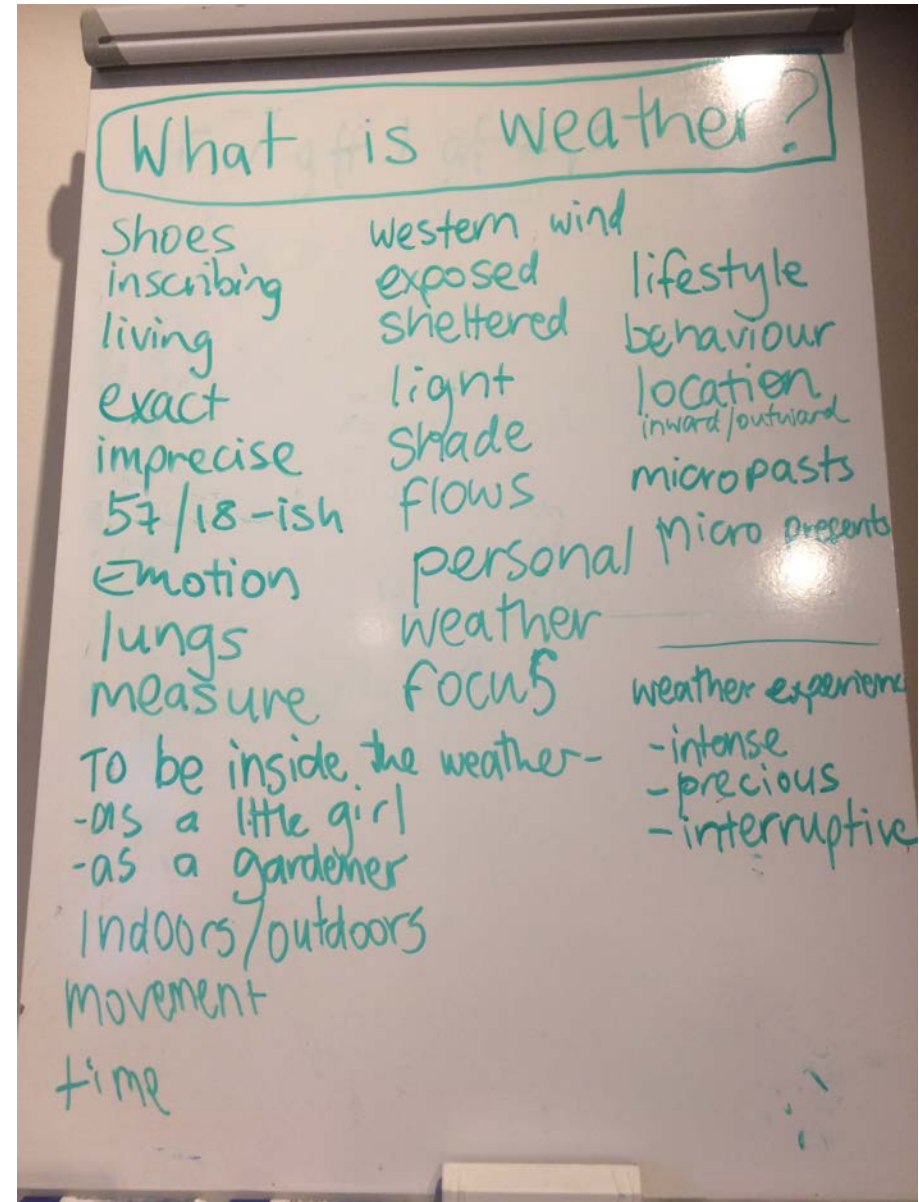 What is weather?
Shoes
inscribing
living
exact
imprecise
57/18-ish
Emotion
lungs
measure
To be inside the weather-
-as a little girl
-as a gardener
Indoors/outdoors
movement
time
western wind
exposed
sheltered
light
shade
flows
personal
weather
focus
lifestyle
behaviour
location
inward/outward
micropasts
Micro presents
weather experienc
-intense
-precious
-interruptive